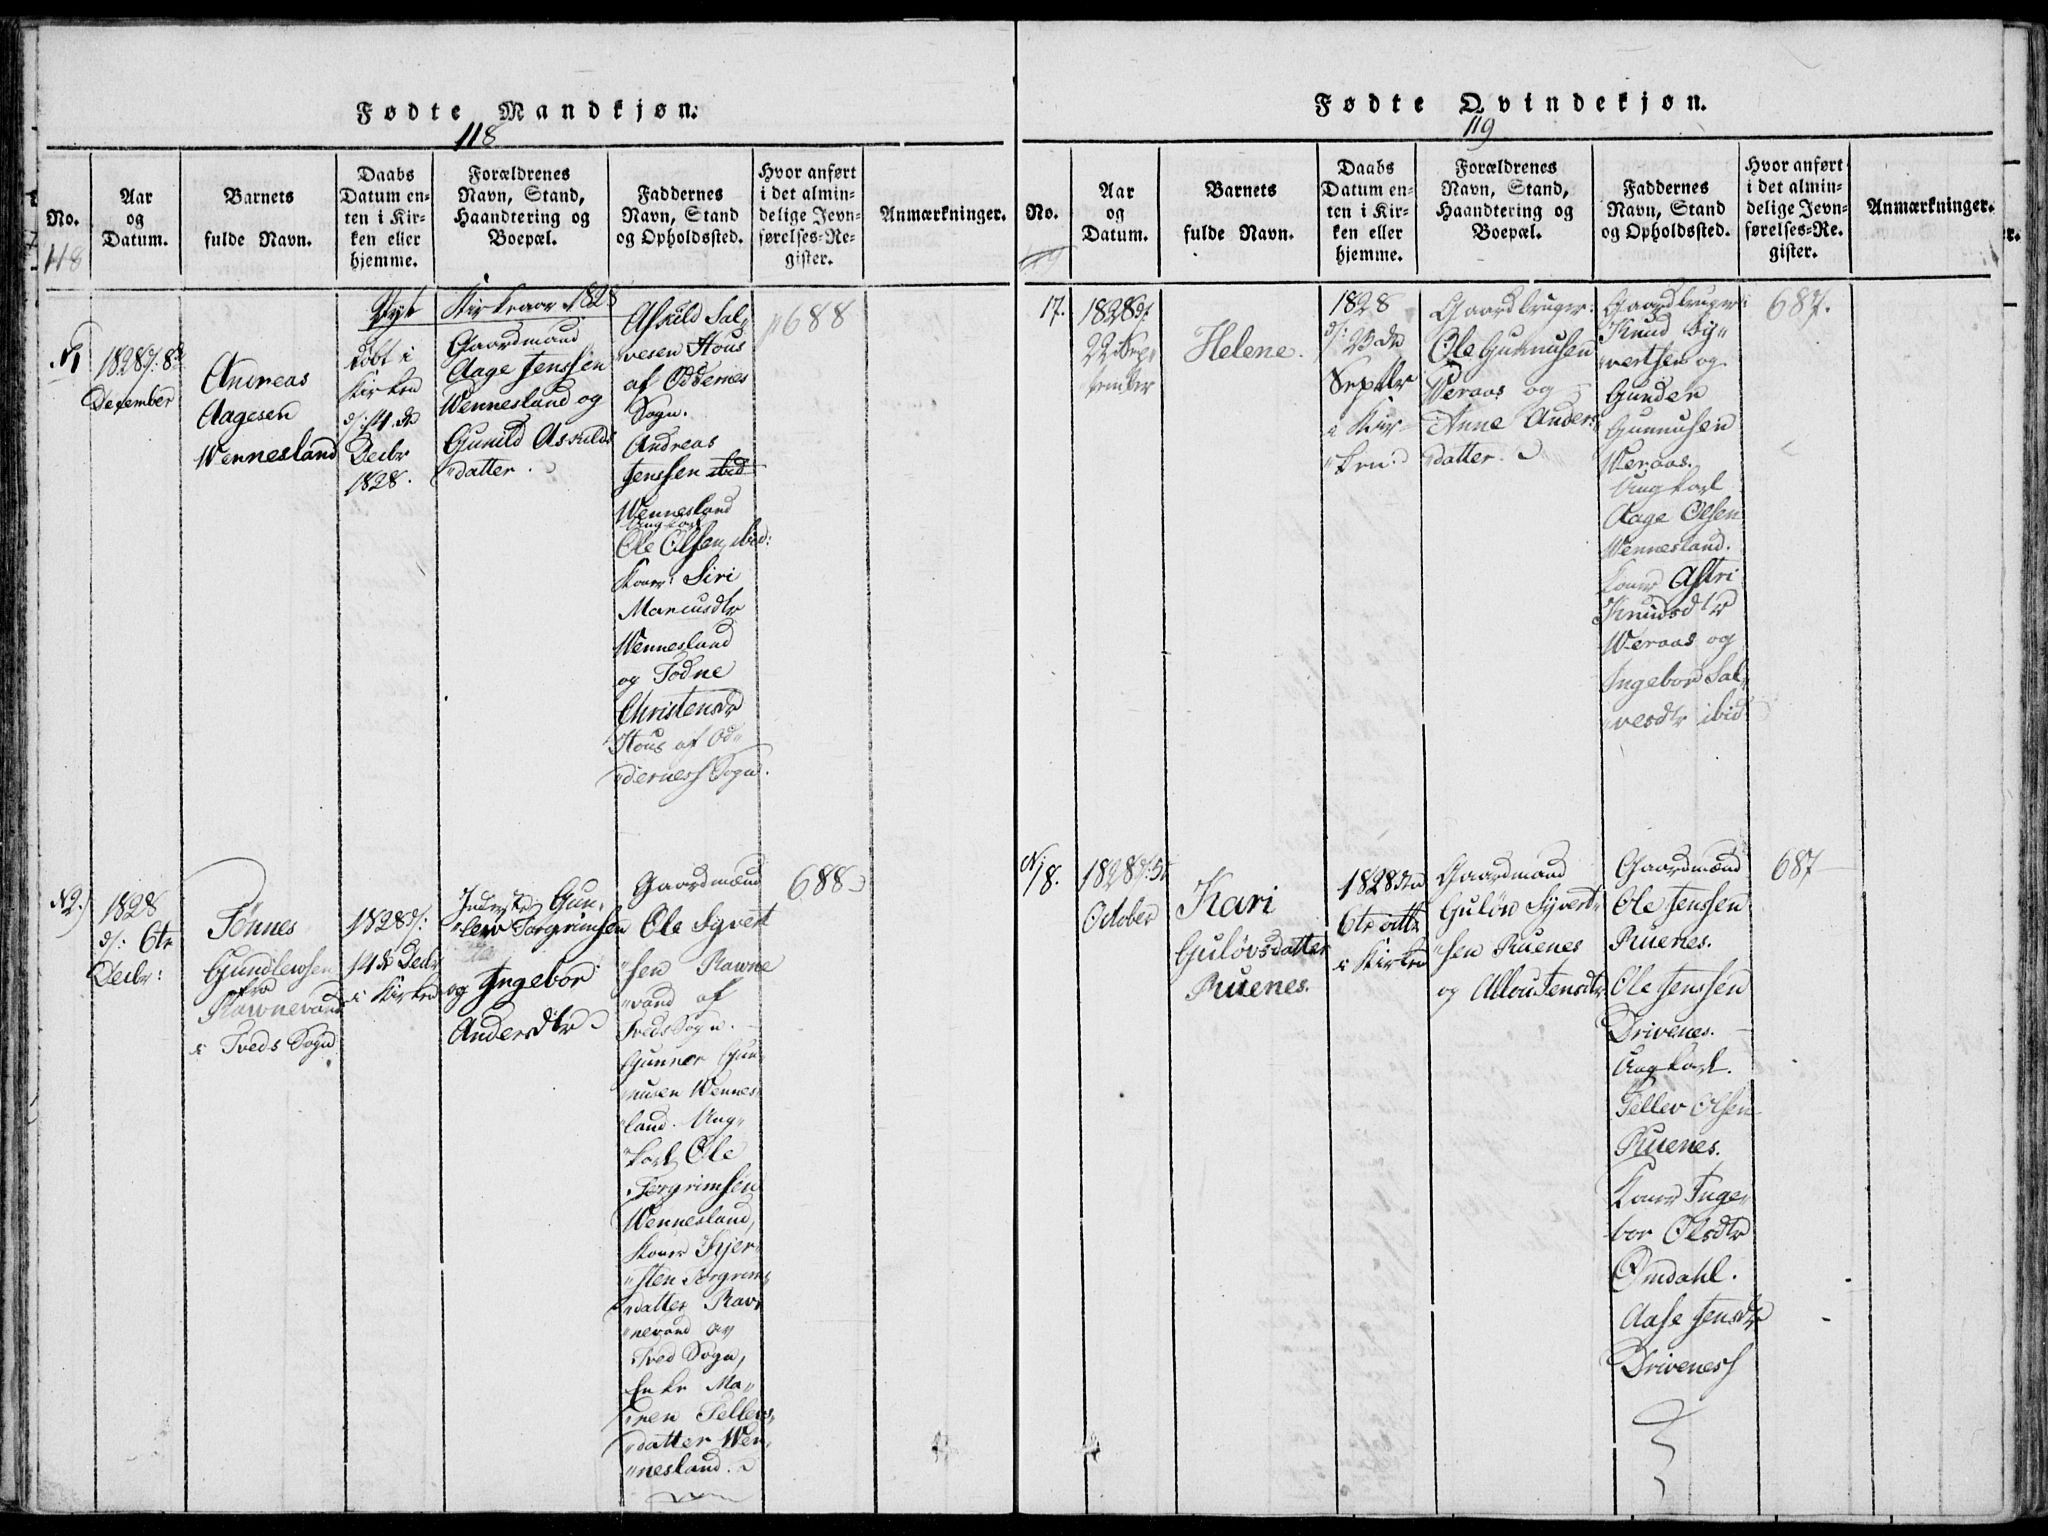 Fødte Mandkjøn.
118
No.
118
Aar
og
Datum.
Barnets
fulde Navn.
Daabs
Datum en-
ten i Kir-
ken eller
hjemme.
Forældrenes
Navn, Stand,
Haandtering og
Boepæl.
Faddernes
Navn, Stand
og Opholdssted.
Hvor anført
i det almin-
delige Jevn-
førelses-Re-
gister.
Anmærkninger.
Nyt Kirkeaar 1828
N1
1828 d: 8de
December
Andreas
Aagesen
Wennesland
døbt i
Kirken
d: 14de
Decbr
1828.
Gaardmand
Aage Jenssen
Wennesland og
Gunild Askilds
datter.
Askild Sal
vesen Hous
af Oddernes
Sogn.
Andreas
Jenssen ibid
Wennesland
Ungkarl
Ole Olsen, ibid:
Koner: Siri
Marcusdtr
Wennesland
og Todne
Christensdr
Hous af Od
derness Sogn.
688
N2.
1828
d: 6te
Decbr:
Tönnes
Gundlewsen
fra
Rawnevand
i Tveds Sogn
1828 d:
14de Decbr
i Kirken
Inderste Gun
lew Torgrimsen
og Ingebor
Andersdtr
Gaardmænd
Ole Syvert
sen Rawne
vand af
Tveds Sogn.
Gunner Gun
nusen Wennes
land. Ung
karl Ole
Torgrimsen
Wennesland,
Koner Kjer
sten Torgrims
datter Rav
nevand av
Tved Sogn,
Enke Ma
ren Tellevs
datter Wen
nesland.
688
Fødte Qvindekjøn.
119
No.
119
Aar
og
Datum.
Barnets
fulde Navn.
Daabs
Datum en-
ten i Kir-
ken eller
hjemme.
Forældrenes
Navn, Stand,
Haandtering og
Boepæl.
Faddernes
Navn, Stand
og Opholdssted.
Hvor anført
i det almin-
delige Jevn-
førelses-Re-
gister.
Anmærkninger.
17.
1828 d:
22 Sep
tember
Helene.
1828
d: 23de
Septbr
i Kir
ken
Gaardbruger:
Ole Gunnusen
Weraas og
Anne Anders
datter.
Gaardbruger:
Knud Sy
vertsen og
Gunder
Gunnusen
Weraas.
Ungkarl
Aage Olsen
Wennesland.
Koner Astri
Knudsdtr
Weraas og
Ingebor Sal
vesdtr ibid
687.
N18.
1828 d: 5t
October
Kari
Guløvsdatter
Ruenes.
1828 den
6te
i Kirken
Gaardmand
Guløv Syvert
sen Ruenes
og Allou Jensdtr
Gaardmænd
Ole Jenssen
Ruenes.
Ole Jenssen
Drivenes.
Ungkarl.
Tellev Olsen
Ruenes.
Koner Inge
bor Olsdtr
Omdahl.
Aase Jensdtr
Driveness
687